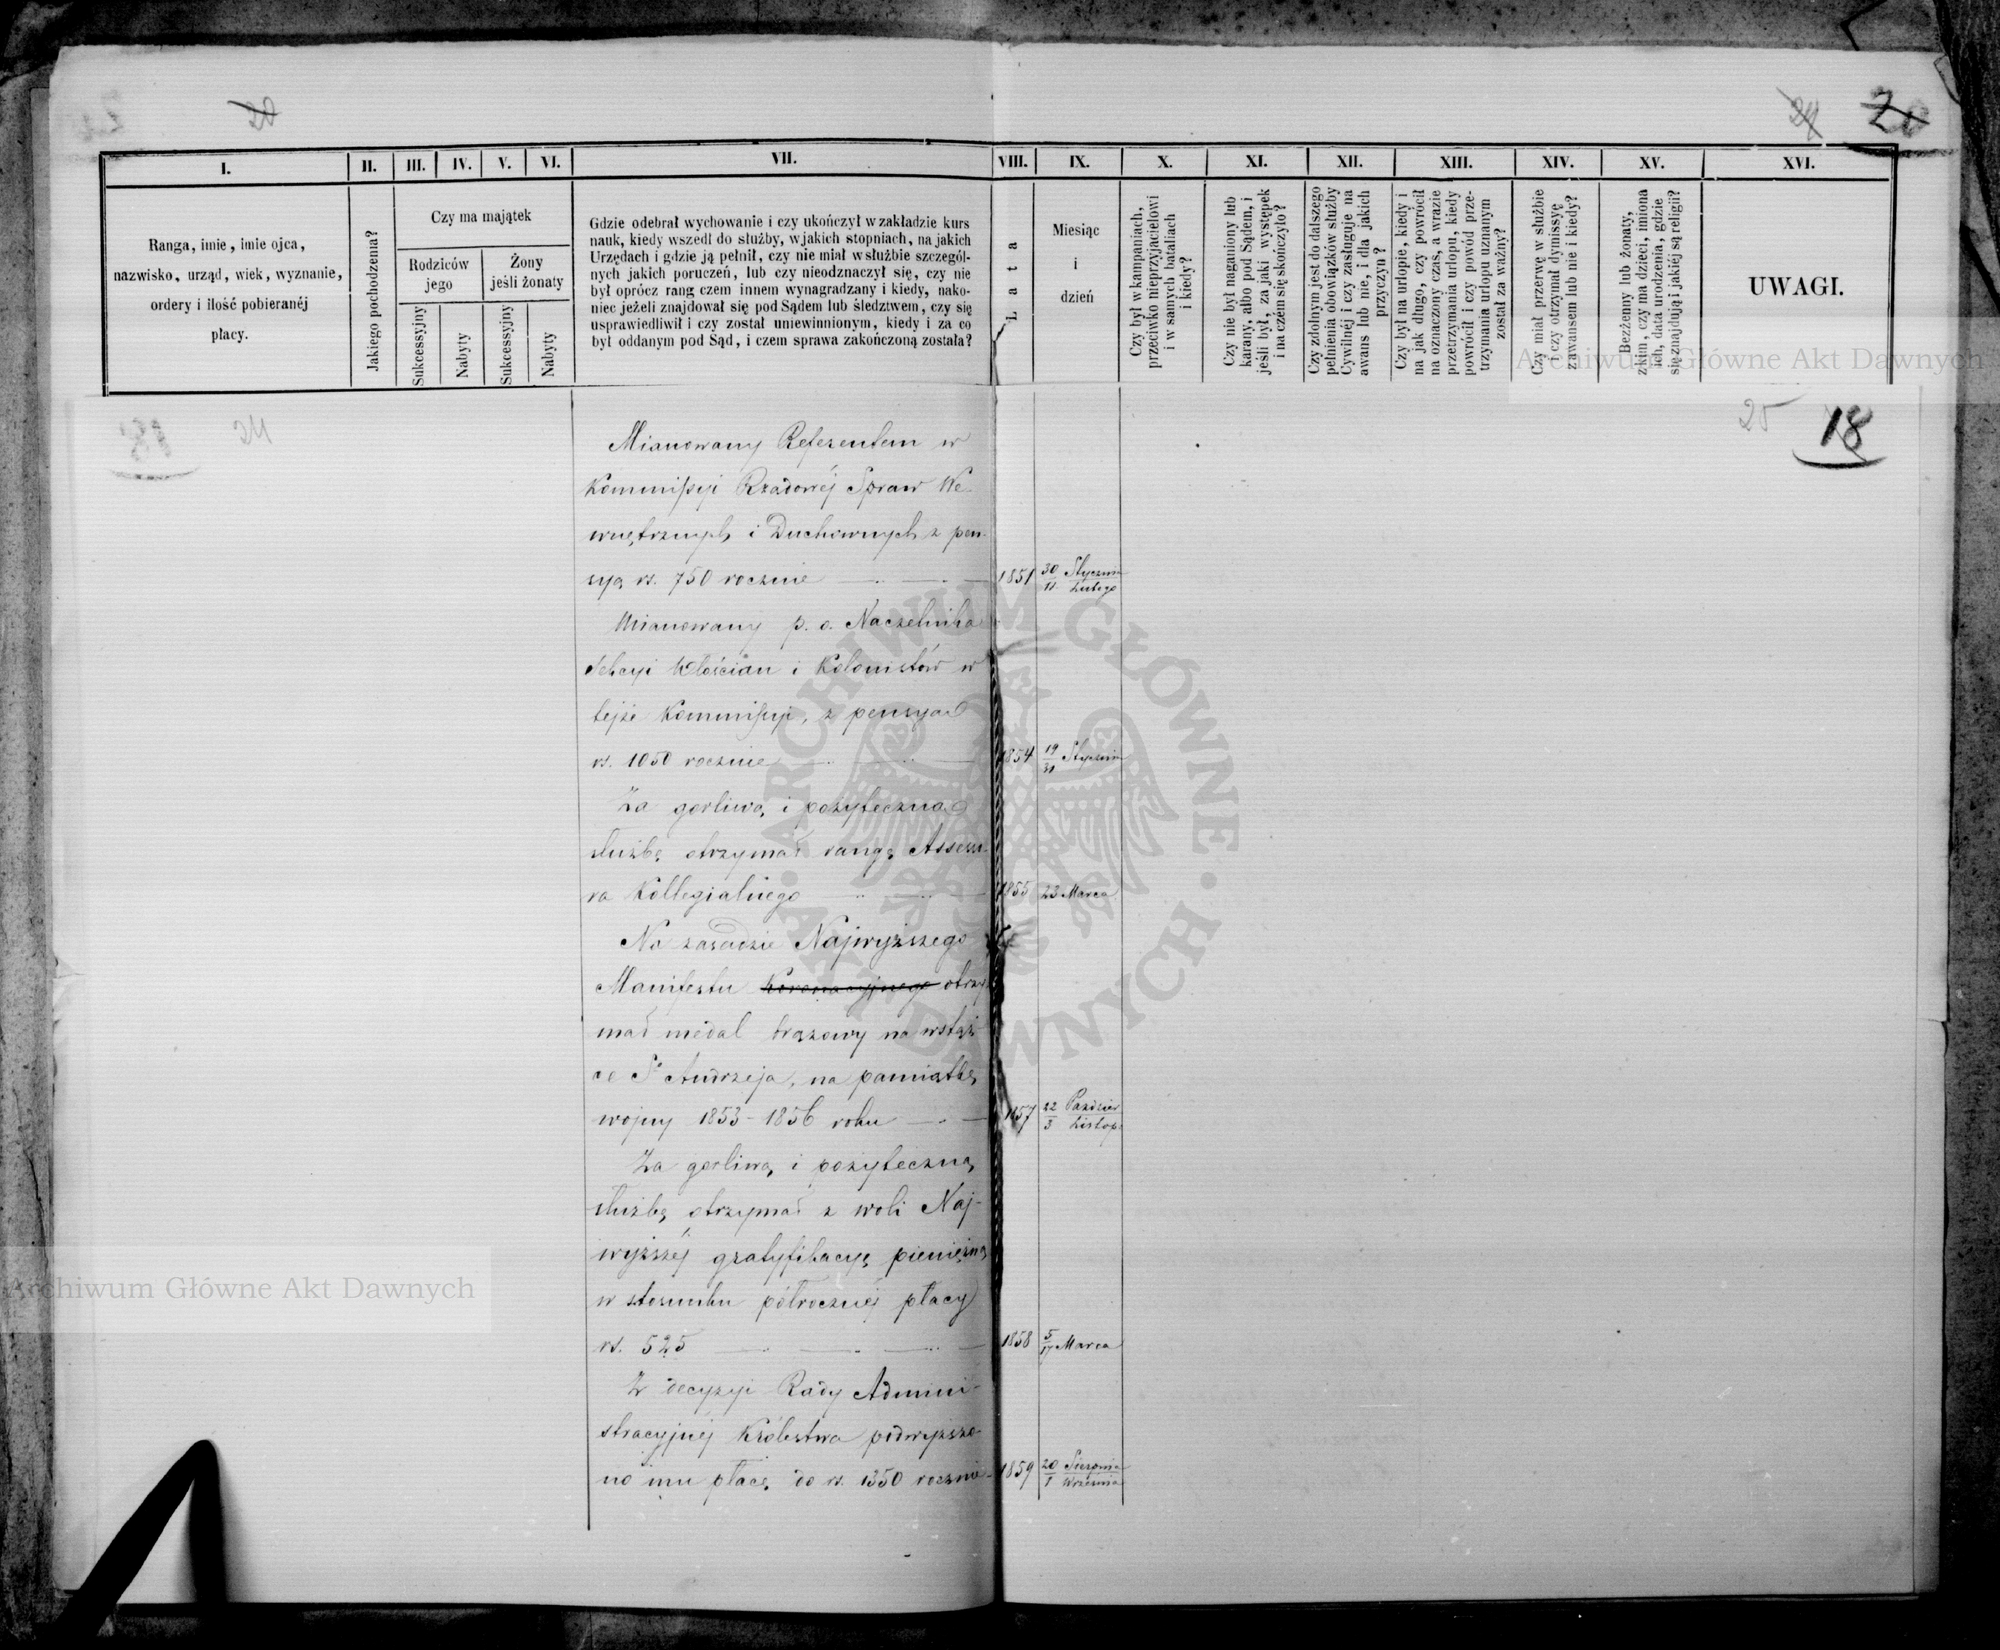 22
24 20
I. II. III. IV. V. VI. VII. VIII. IX. X. XI. XII. XIII. XIV. XV. XVI.
Ranga, imie, imie ojca,
nazwisko, urząd, wiek, wyznanie,
ordery i ilość pobieranéj
płacy.
Jakiego pochodzenia?
Czy ma majątek
Rodziców
jego
Żony
jeśli żonaty
Sukcessyjny
Nabyty
Sukcessyjny
Nabyty
Gdzie odebrał wychowanie i czy ukończył w zakładzie kurs
nauk, kiedy wszedł do służby, w jakich stopniach, na jakich
Urzędach i gdzie ją pełnił, czy nie miał w służbie szczegól-
nych jakich poruczeń, lub czy nieodznaczył się, czy nie
był oprócz rang czem innem wynagradzany i kiedy, nako-
niec jeżeli znajdował się pod Sądem lub śledztwem, czy się
usprawiedliwił i czy został uniewinnionym, kiedy i za co
był oddanym pod Sąd, i czem sprawa zakończoną została?
Lata
Miesiąc
i
dzień
Czy był w kampaniach,
przeciwko nieprzyjacielowi
i w samych bataliach
i kiedy?
Czy nie był naganiony lub
karany, albo pod Sądem, i
jeśli był, za jaki występek
i na czem się skończyło?
Czy zdolnym jest do dalszego
pełnienia obowiązków służby
Cywilnéj i czy zasługuje na
awans lub nie, i dla jakich
przyczyn?
Czy był na urlopie, kiedy i
na jak długo, czy powrócił
na oznaczony czas, a wrazie
przetrzymania urlopu, kiedy
powrócił i czy powód prze-
trzymania urlopu uznanym
został za ważny?
Czy miał przerwę w służbie
i czy otrzymał dymissyę
z awansem lub nie i kiedy?
Bezżenny lub żonaty,
z kim, czy ma dzieci, imiona
ich, data urodzenia, gdzie
się znajdują i jakiéj są religii?
UWAGI.
25 18
Mianowany Referentem w
Kommissyi Rządowéj Spraw We-
wnętrznych i Duchownych z pen-
syą rs. 750 rocznie 1851 30/11 Stycznia/Lutego
Mianowany p. o. Naczelnika
Sekcyi Włościan i Kolonistów w
tejże Kommissyi, z pensyą
rs. 1050 rocznie 1854 19/31 Stycznia
Za gorliwą i pożyteczną
służbę otrzymał rangę Assesso-
ra Kollegialnego 1855 23 Marca
Na zasadzie Najwyższego
Manifestu Koronacyjnego otrzy
mał medal brązowy na wstąż-
ce Sº Andrzeja, na pamiątkę
wojny 1853-1856 roku 1857 22/3 Paździer/Listop.
Za gorliwą i pożyteczną
służbę otrzymał z woli Naj-
wyższéj gratyfikacyę pieniężną
w stosunku półrocznéj płacy
rs. 525 1858 5/17 Marca
Z decyzyi Rady Admini-
stracyjnéj Królestwa podwyższo-
no mu płacę do rs. 1350 rocznie 1859 20/1 Sierpnia/Września
ARCHIWUM GŁÓWNE AKT DAWNYCH
Archiwum Główne Akt Dawnych
Archiwum Główne Akt Dawnych